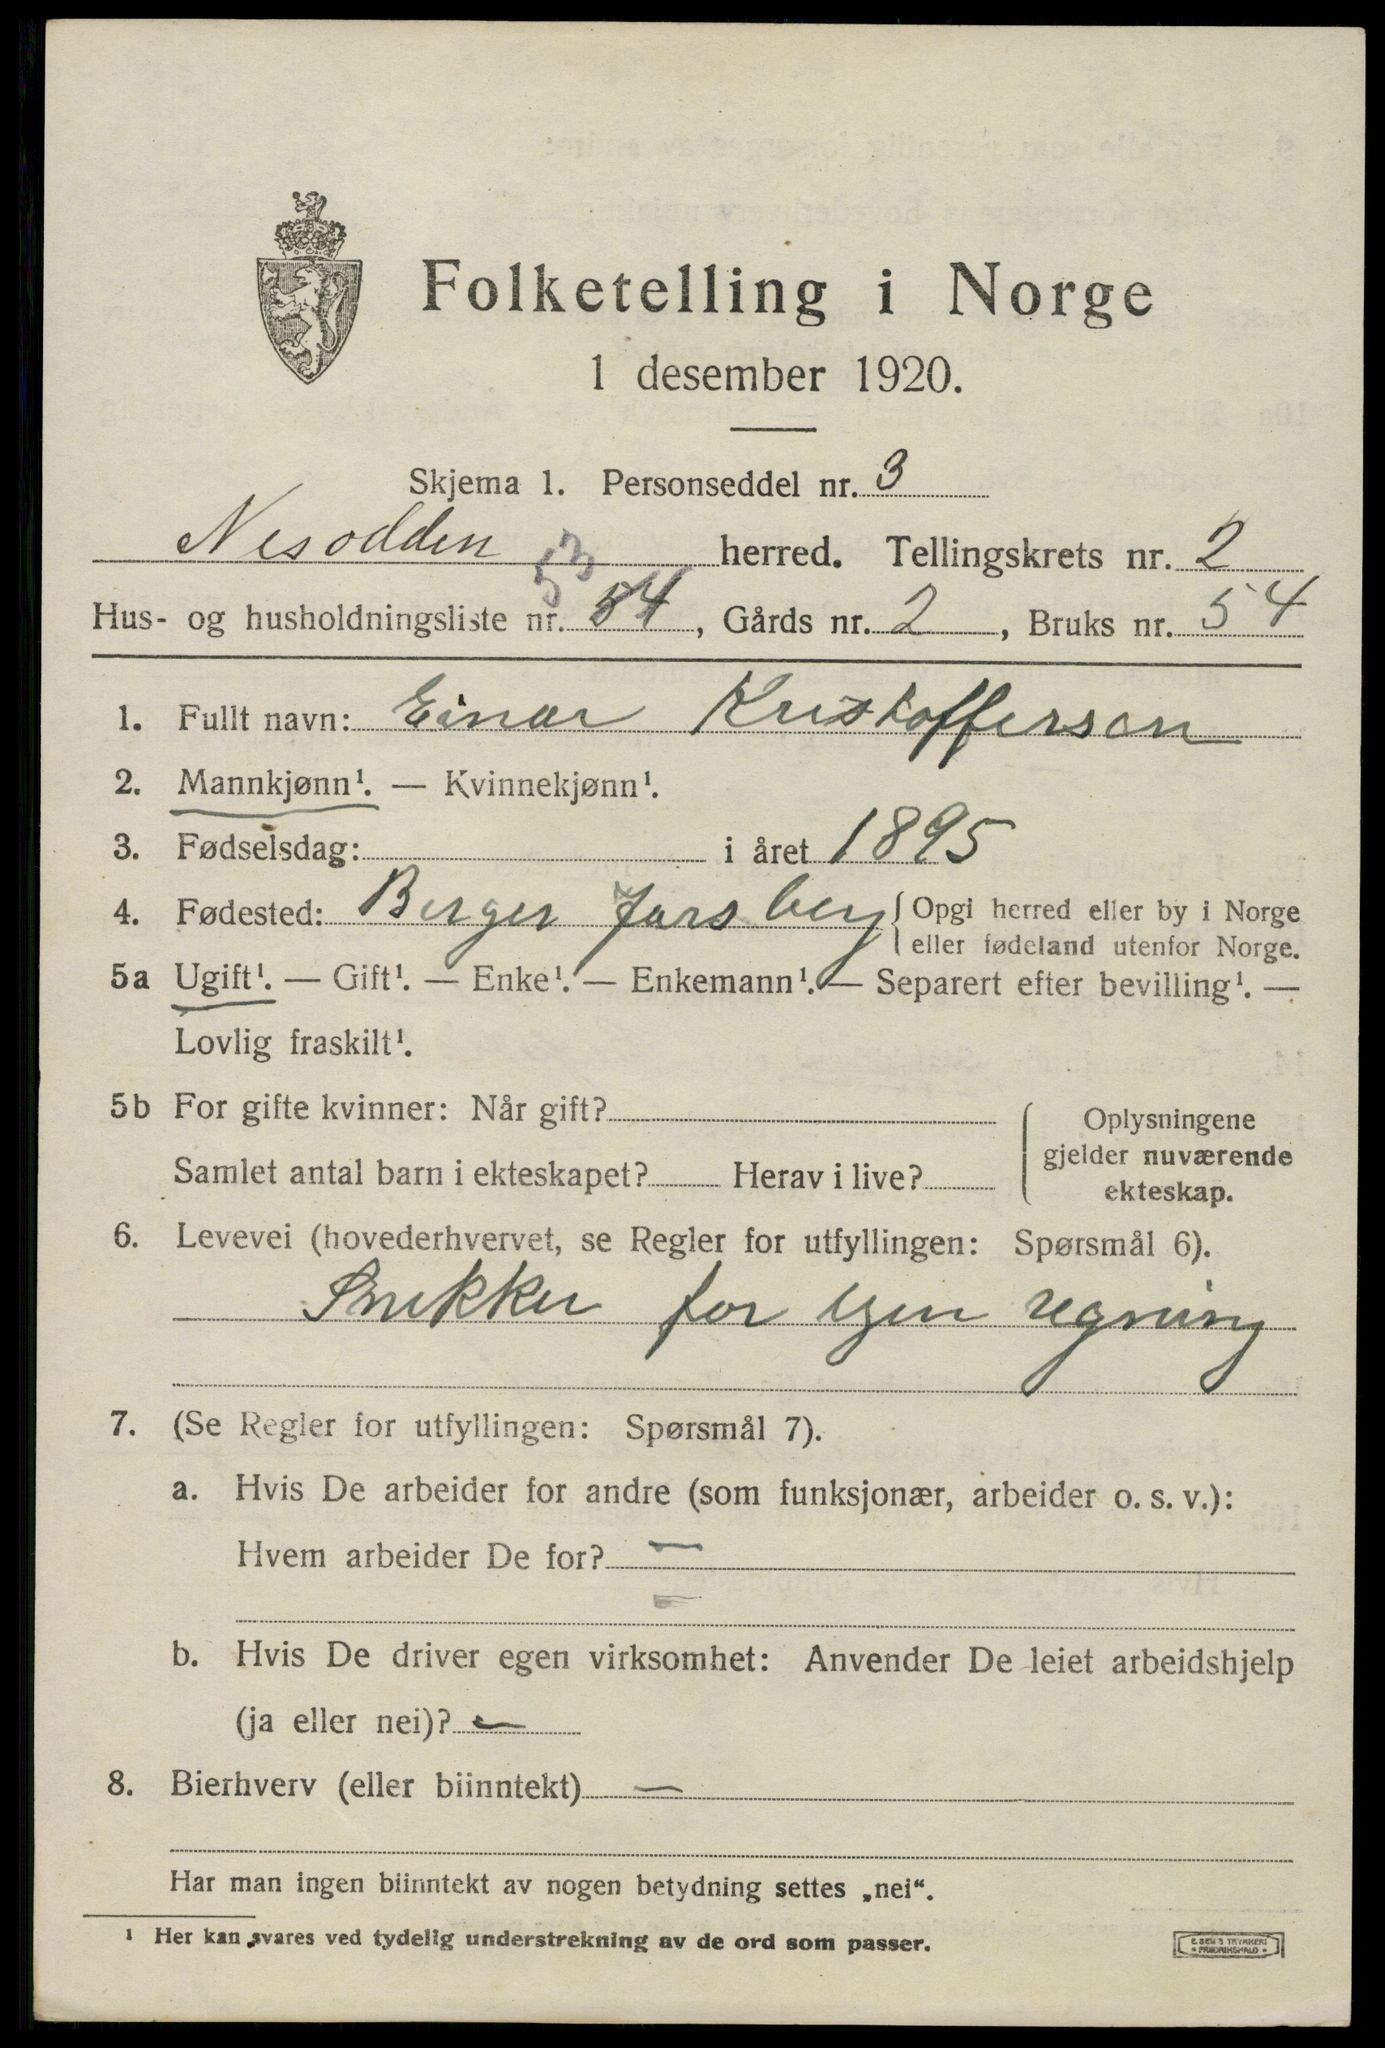 Folketelling i Norge
1 desember 1920.
Skjema 1. Personseddel nr. 3
Nesodden herred. Tellingskrets nr. 2
53
Hus- og husholdningsliste nr. 54, Gårds nr. 2, Bruks nr. 54
1. Fullt navn: Einar Kristoffersen
2. Mannkjønn¹. — Kvinnekjønn¹.
3. Fødselsdag: i året 1895
4. Fødested: Berger Jarsberg { Opgi herred eller by i Norge
eller fødeland utenfor Norge.
5a Ugift¹. — Gift¹. — Enke¹. — Enkemann¹. — Separert efter bevilling¹. —
Lovlig fraskilt¹.
5b For gifte kvinner: Når gift?
Samlet antal barn i ekteskapet? Herav i live?
Oplysningene
gjelder nuværende
ekteskap.
6. Levevei (hovederhvervet, se Regler for utfyllingen: Spørsmål 6).
Snekker for egen regning
7. (Se Regler for utfyllingen: Spørsmål 7).
a. Hvis De arbeider for andre (som funksjonær, arbeider o. s. v.):
Hvem arbeider De for? —
b. Hvis De driver egen virksomhet: Anvender De leiet arbeidshjelp
(ja eller nei)? —
8. Bierhverv (eller biinntekt) —
Har man ingen biinntekt av nogen betydning settes „nei“.
¹ Her kan svares ved tydelig understrekning av de ord som passer.